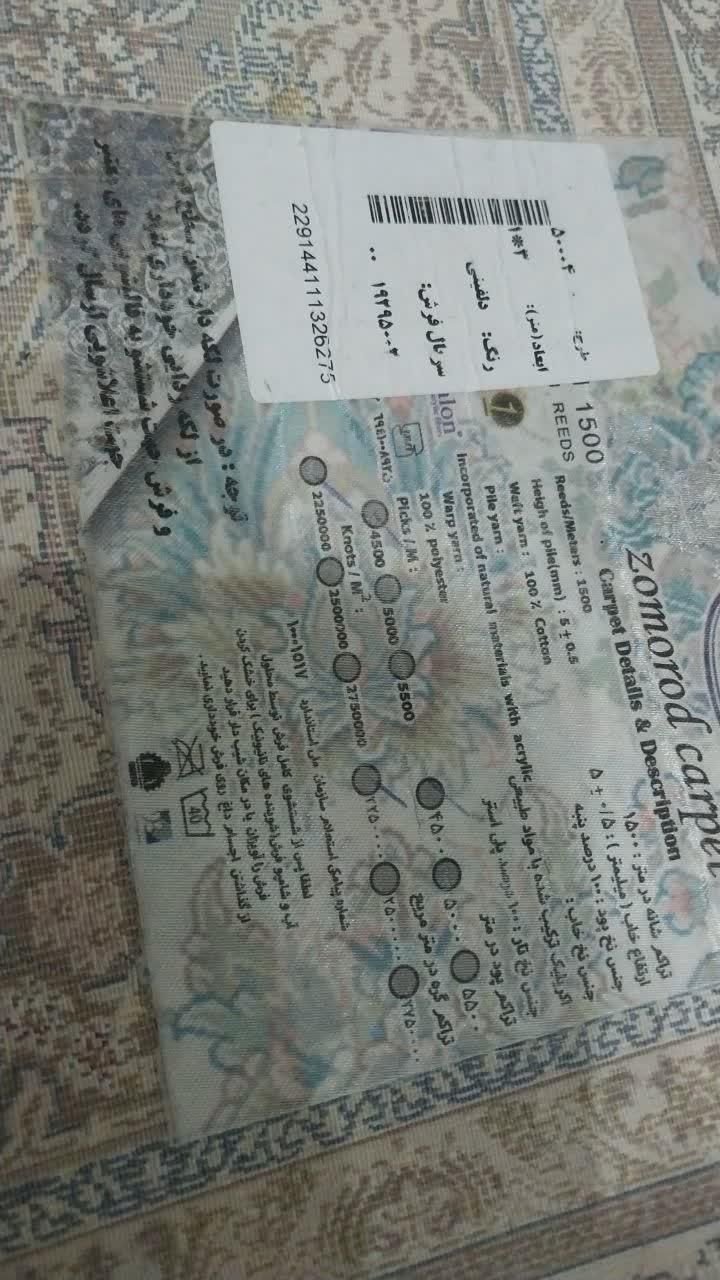 Zomorod carpet
Carpet Details & Description
1500
REEDS
Reeds/Meters : 1500
Heigh of pile(mm) : 5 ± 0.5
Weft yarn : 100 % Cotton
Pile yarn :
Incorporated of natural materials with acrylic
Warp yarn :
100 % polyester
Picks / M :
4500 5000 5500
Knots / M² :
2250000 2500000 2750000
تراکم شانه در متر : ۱۵۰۰
ارتفاع خاب ( میلیمتر ) : ۵ ± ۰/۵
جنس نخ پود : ۱۰۰ درصد پنبه
جنس نخ خاب :
اکریلیک ترکیب شده با مواد طبیعی
جنس نخ تار : ۱۰۰ درصد پلی استر
تراکم پود در متر
۴۵۰۰ ۵۰۰۰ ۵۵۰۰
تراکم گره در متر مربع
۲۲۵۰۰۰۰ ۲۵۰۰۰۰۰ ۲۷۵۰۰۰۰
شماره پیامکی استعلام سازمان ملی استاندارد ۱۰۰۰۱۵۱۷
لطفا پس از شستشوی کامل فرش توسط محلول
آب و شامپو فرش
فرش را آویزان یا در مکان شیب دار قرار دهید
از گذاشتن اجسام داغ روی فرش خودداری نمایید.
40
طرح: ۵۰۰۴
ابعاد(متر): ۳*۱
رنگ: دلفینی
سریال فرش:
۱۹۲۹۵۰۰۲ ۰۰
229144111326275
توجه : در صورت لکه دار شدن سطح
از لکه زدایی خودداری
و فرش جهت شستشو به قالیشویی های معتبر
جهت اعلاشویی ارسال گردد.